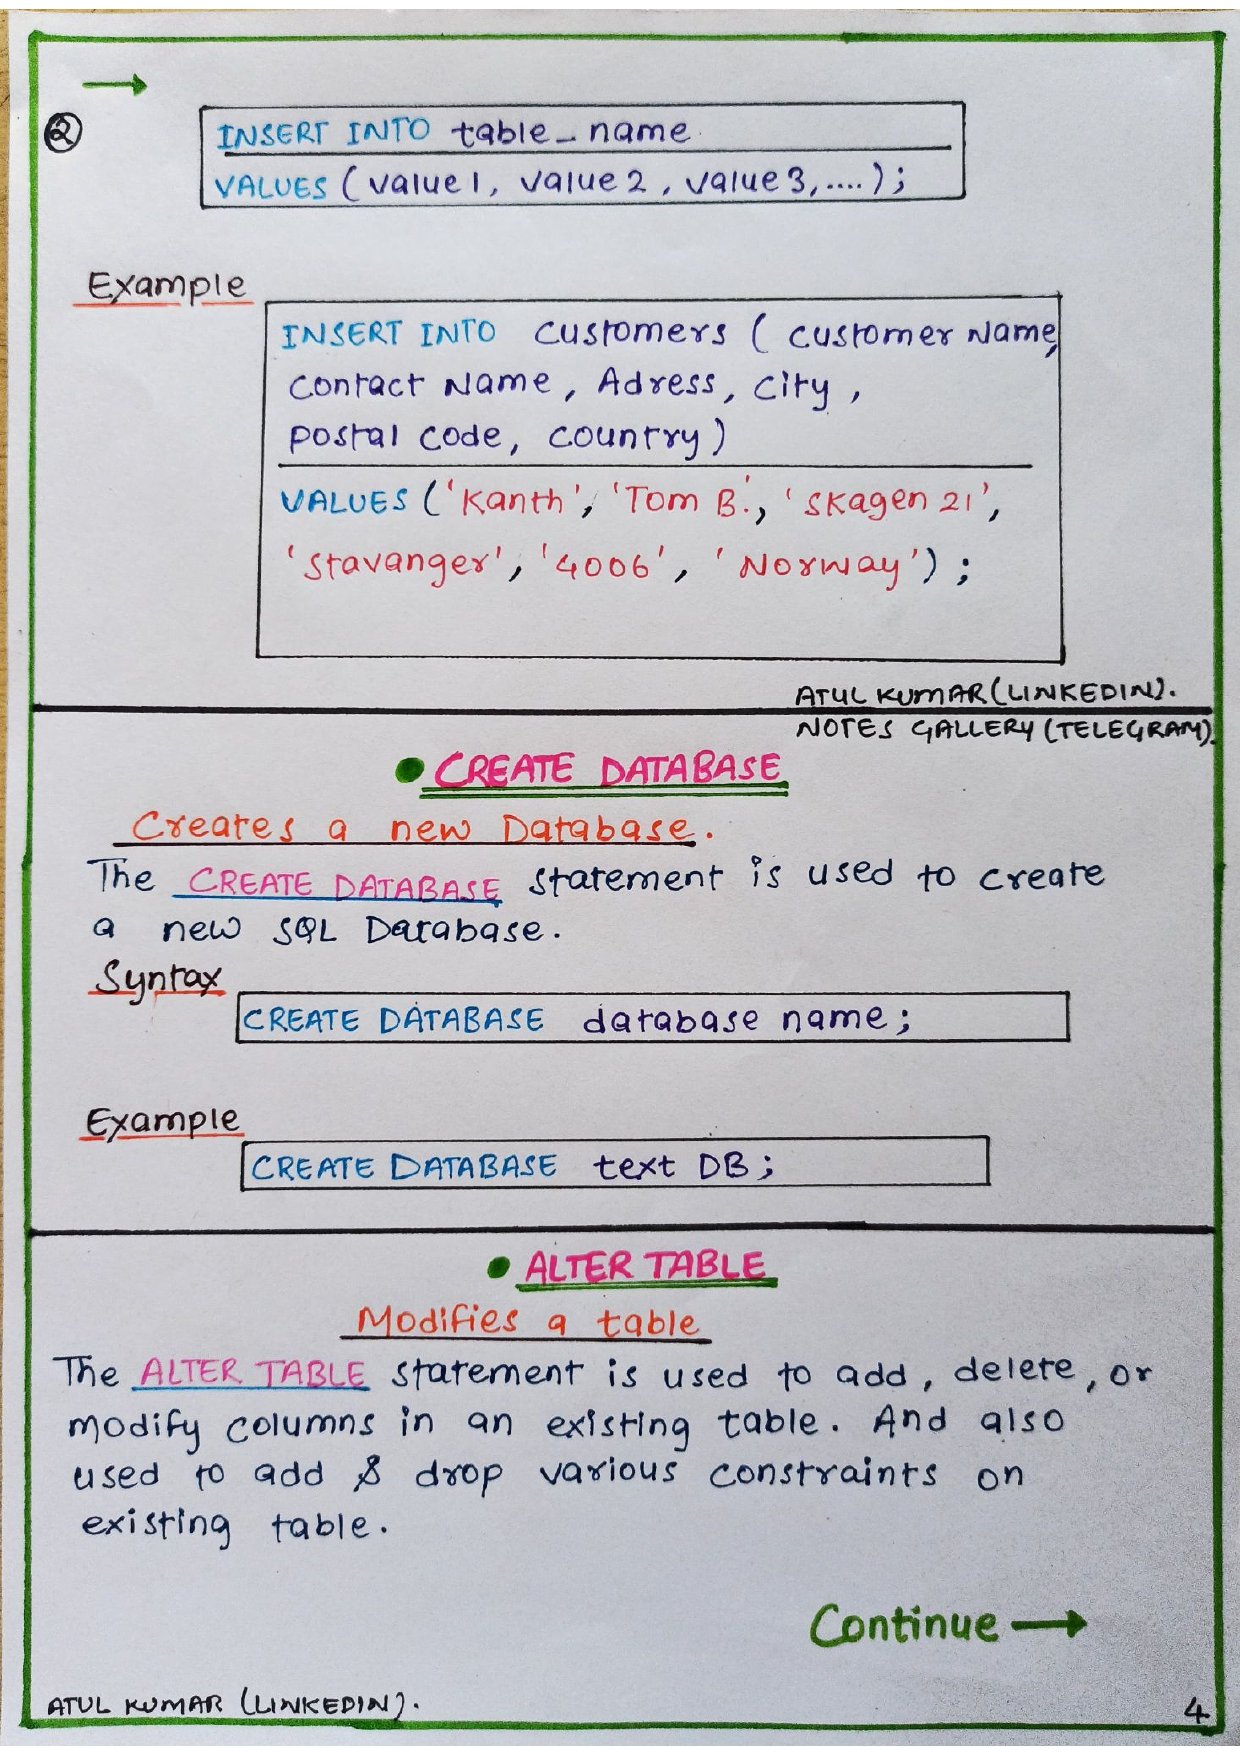 ②
INSERT INTO table_name
VALUES (value1, value2, value3,....);
Example
INSERT INTO customers (customer Name,
contact Name, Adress, city,
postal code, country)
VALUES ('Kanth', 'Tom B.', 'skagen 21',
'stavanger', '4006', 'Norway');
ATUL KUMAR (LINKEDIN).
NOTES GALLERY (TELEGRAM).
• CREATE DATABASE
Creates a new Database.
The CREATE DATABASE statement is used to create
a new SQL Database.
Syntax
CREATE DATABASE database name;
Example
CREATE DATABASE text DB;
• ALTER TABLE
Modifies a table
The ALTER TABLE statement is used to add, delete, or
modify columns in an existing table. And also
used to add & drop various constraints on
existing table.
Continue →
ATUL KUMAR (LINKEDIN).
4